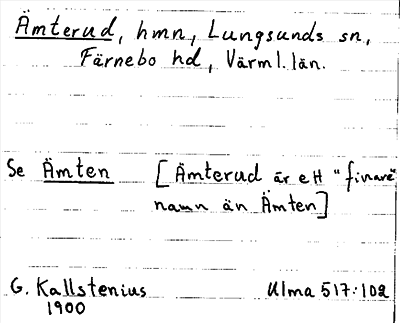 Ämterud, hmn, Lungsunds sn,
Färnebo hd, Värml. län.
Se Ämten [Ämterud är ett "finare"
namn än Ämten]
G. Kallstenius Ulma 517:102
1900